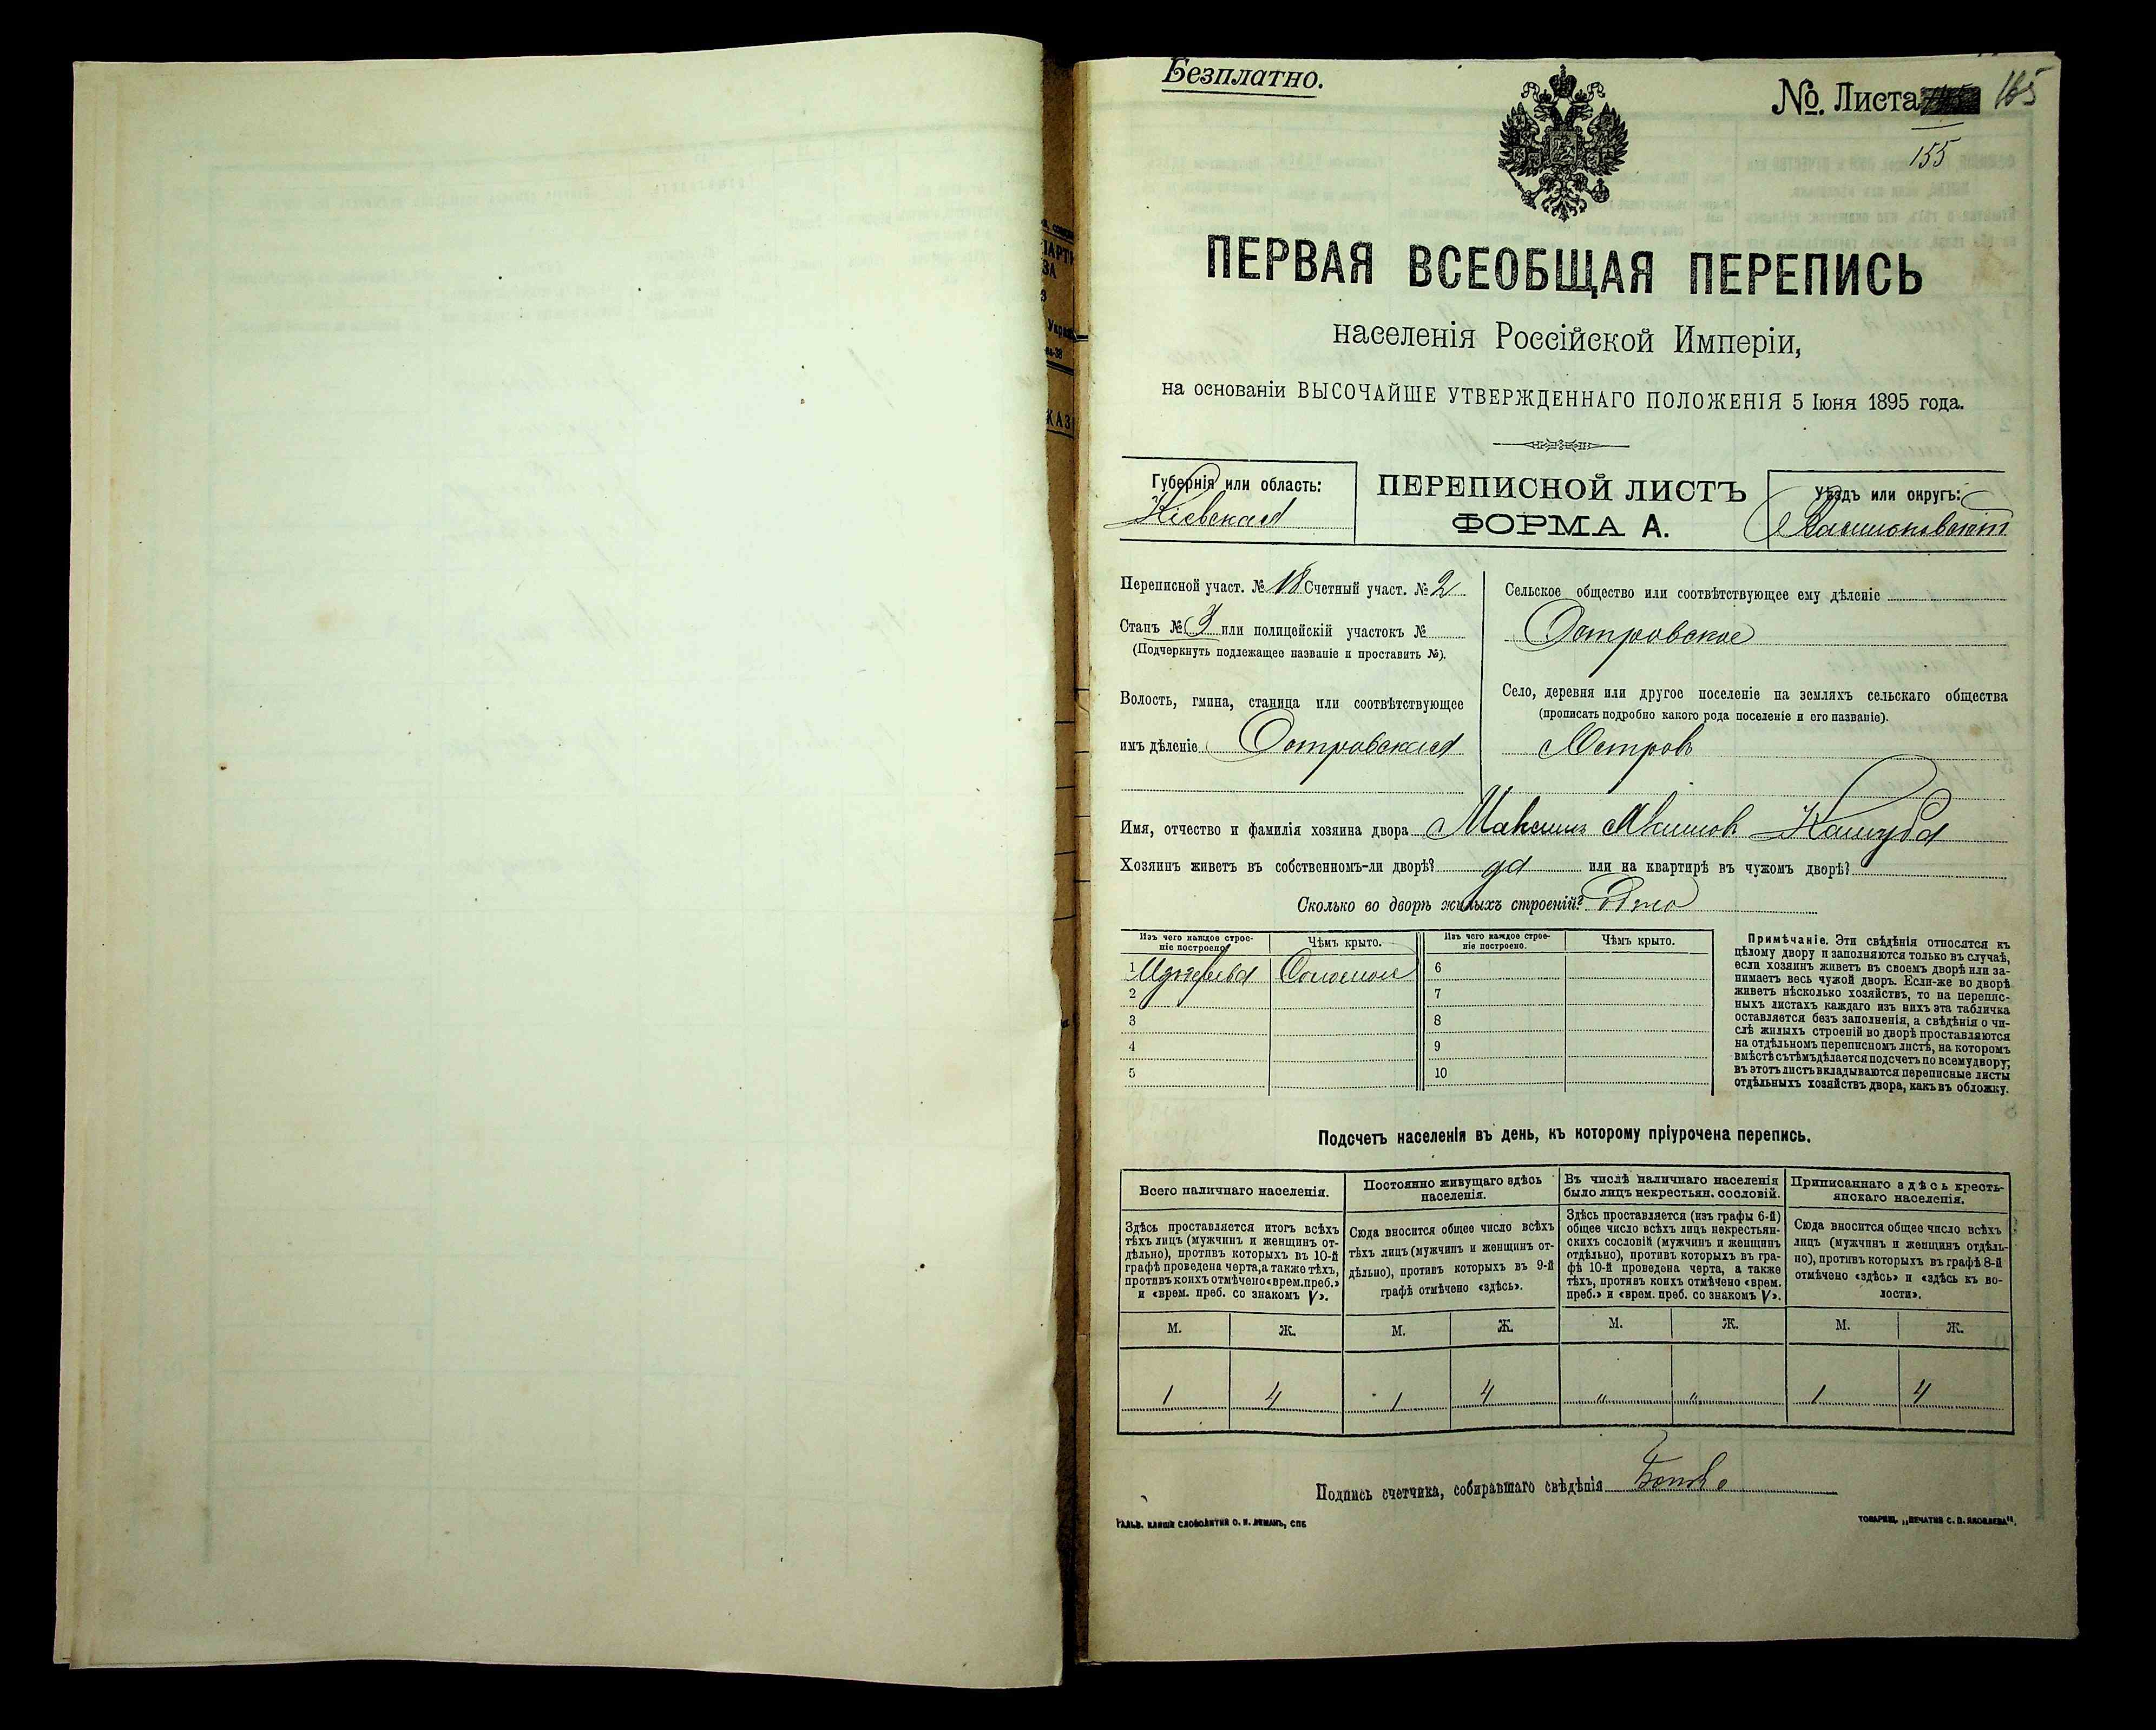 Безплатно.
№. Листа 165
155
ПЕРВАЯ ВСЕОБЩАЯ ПЕРЕПИСЬ
населенія Россійской Имперіи,
на основаніи ВЫСОЧАЙШЕ УТВЕРЖДЕННАГО ПОЛОЖЕНІЯ 5 Іюня 1895 года.
Губернія или область:
Кіевская
ПЕРЕПИСНОЙ ЛИСТЪ
ФОРМА А.
Уѣздъ или округъ:
Переписной участ. № 18 Счетный участ. № 2
Станъ № 3 или полицейскій участокъ №
(Подчеркнуть подлежащее названіе и проставить №).
Волость, гмина, станица или соотвѣтствующее
имъ дѣленіе Островская
Сельское общество или соотвѣтствующее ему дѣленіе
Островское
Село, деревня или другое поселеніе на земляхъ сельскаго общества
(прописать подробно какого рода поселеніе и его названіе).
Островъ
Имя, отчество и фамилія хозяина двора Максимъ Акимовъ Кашуба
Хозяинъ живетъ въ собственномъ-ли дворѣ? да или на квартирѣ въ чужомъ дворѣ?
Сколько во дворѣ жилыхъ строеній? Одно
Изъ чего каждое строе-
ніе построено.
Чѣмъ крыто.
Изъ чего каждое строе-
ніе построено.
Чѣмъ крыто.
1 Изъ дерева Соломою 6
2 7
3 8
4 9
5 10
Примѣчаніе. Эти свѣдѣнія относятся къ
цѣлому двору и заполняются только въ случаѣ,
если хозяинъ живетъ въ своемъ дворѣ или за-
нимаетъ весь чужой дворъ. Если-же во дворѣ
живетъ нѣсколько хозяйствъ, то на перепис-
ныхъ листахъ каждаго изъ нихъ эта табличка
оставляется безъ заполненія, а свѣдѣнія о чи-
слѣ жилыхъ строеній во дворѣ проставляются
на отдѣльномъ переписномъ листѣ, на которомъ
вмѣстѣ съ тѣмъ дѣлается подсчетъ по всему двору;
въ этотъ листъ вкладываются переписные листы
отдѣльныхъ хозяйствъ двора, какъ въ обложку.
Подсчетъ населенія въ день, къ которому пріурочена перепись.
Всего наличнаго населенія.
Постоянно живущаго здѣсь
населенія.
Въ числѣ наличнаго населенія
было лицъ некрестьян. сословій.
Приписаннаго здѣсь кресть-
янскаго населенія.
Здѣсь проставляется итогъ всѣхъ
тѣхъ лицъ (мужчинъ и женщинъ от-
дѣльно), противъ которыхъ въ 10-й
графѣ проведена черта, а также тѣхъ,
противъ коихъ отмѣчено «врем. преб.»
и «врем. преб. со знакомъ V».
Сюда вносится общее число всѣхъ
тѣхъ лицъ (мужчинъ и женщинъ от-
дѣльно), противъ которыхъ въ 9-й
графѣ отмѣчено «здѣсь».
Здѣсь проставляется (изъ графы 6-й)
общее число всѣхъ лицъ некрестьян-
скихъ сословій (мужчинъ и женщинъ
отдѣльно), противъ которыхъ въ гра-
фѣ 10-й проведена черта, а также
тѣхъ, противъ коихъ отмѣчено «врем.
преб.» и «врем. преб. со знакомъ V».
Сюда вносится общее число всѣхъ
лицъ (мужчинъ и женщинъ отдѣль-
но), противъ которыхъ въ графѣ 8-й
отмѣчено «здѣсь» и «здѣсь къ во-
лости».
М. Ж. М. Ж. М. Ж. М. Ж.
1 4 1 4 " " 1 4
Подпись счетчика, собиравшаго свѣдѣнія
ГАЛЬВ. КЛИШЕ СЛОВОЛИТНИ О. И. ЛЕМАНЪ, СПБ
ТОВАРИЩ. „ПЕЧАТНЯ С. П. ЯКОВЛЕВА".